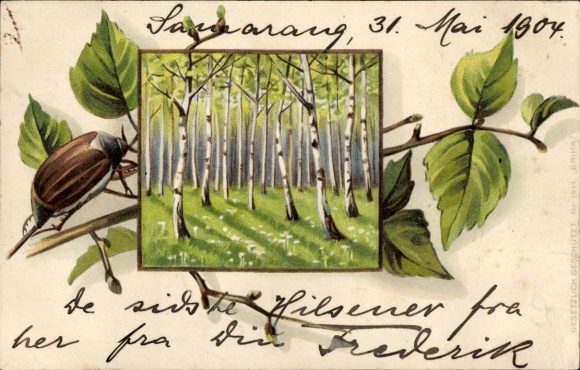 Samarang, 31. Mai 1904.
De sidste Hilsener fra
her fra Din Frederik
GESETZLICH GESCHÜTZT